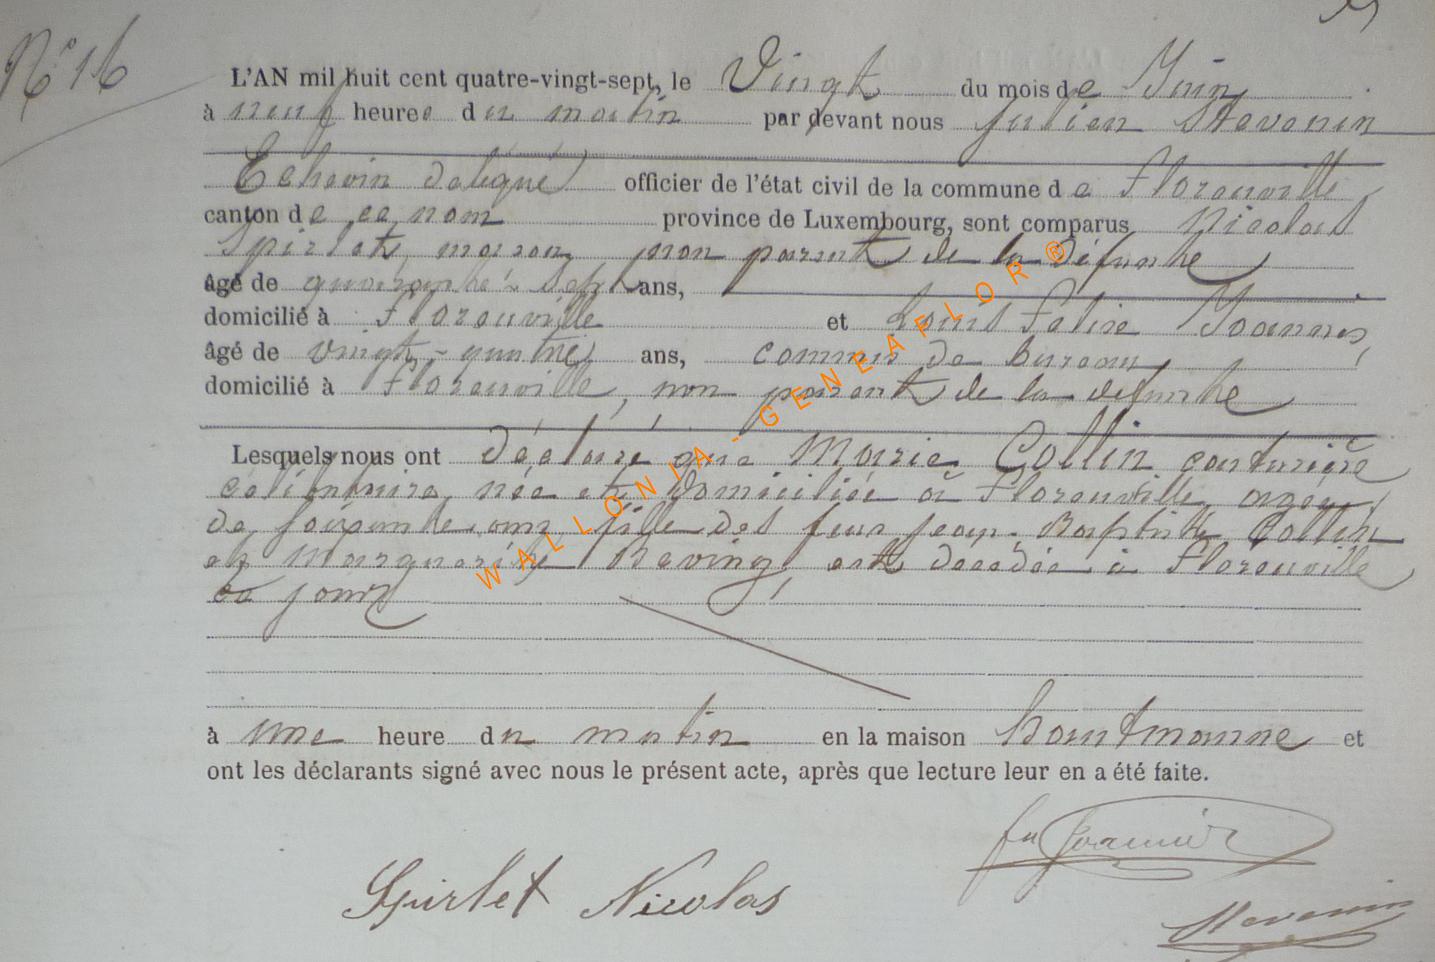 N° 16
L'AN mil huit cent quatre-vingt-sept, le Vingt du mois de Juin
à neuf heures du matin par devant nous Julien Stevenin
Echevin délégué officier de l'état civil de la commune de Florenville
canton de ce nom province de Luxembourg, sont comparus Nicolas
Spirlet, maçon, non parent de la défunte
âgé de quarante-sept ans,
domicilié à Florenville et Louis Felix Joannes,
âgé de vingt-quatre ans, commis de bureau
domicilié à Florenville, non parent de la defunte
Lesquels nous ont déclaré que Marie Collin couturière
célibataire, née et domiciliée à Florenville, agée
de soixante ans fille des feux Jean-Baptiste Collin
et Marguerite, est décédée à Florenville
ce jour
à une heure du matin en la maison et
ont les déclarants signé avec nous le présent acte, après que lecture leur en a été faite.
Spirlet Nicolas
Stevenin
WALLONIA - GENEAFLOR ®